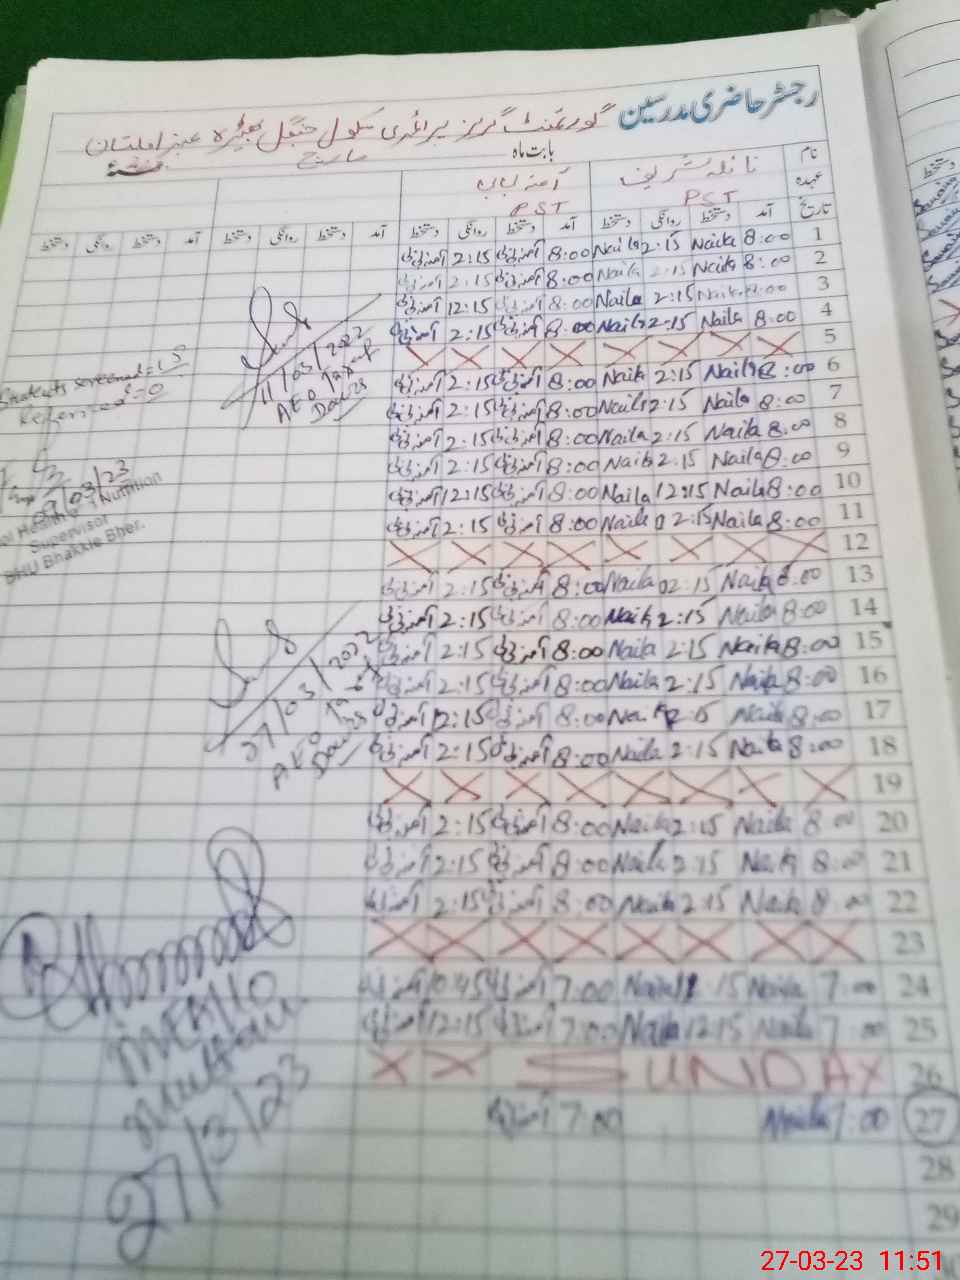 رجسٹر حاضری مدرسین گورنمنٹ گرلز پرائمری سکول جنگل بھیڑہ
بابت ماہ مارچ
نام نائلہ شریف آمنہ بی بی
عہدہ PST PST
تاریخ آمد دستخط روانگی دستخط آمد دستخط روانگی دستخط آمد دستخط روانگی دستخط آمد دستخط روانگی دستخط
1 8:00 Naila 2:15 Naila 8:00 آمنہ بی بی 2:15 آمنہ بی بی
2 8:00 Naila 2:15 Naila 8:00 آمنہ بی بی 2:15 آمنہ بی بی
3 8:00 Naila 2:15 Naila 8:00 آمنہ بی بی 12:15 آمنہ بی بی
4 8:00 Naila 2:15 Naila 8:00 آمنہ بی بی 2:15 آمنہ بی بی
5 X X X X X X X X
6 8:00 Naila 2:15 Naila 8:00 آمنہ بی بی 2:15 آمنہ بی بی
7 8:00 Naila 2:15 Naila 8:00 آمنہ بی بی 2:15 آمنہ بی بی
8 8:00 Naila 2:15 Naila 8:00 آمنہ بی بی 2:15 آمنہ بی بی
9 8:00 Naila 2:15 Naila 8:00 آمنہ بی بی 2:15 آمنہ بی بی
10 8:00 Naila 12:15 Naila 8:00 آمنہ بی بی 12:15 آمنہ بی بی
11 8:00 Naila 02:15 Naila 8:00 آمنہ بی بی 2:15 آمنہ بی بی
12 X X X X X X X X
13 8:00 Naila 02:15 Naila 8:00 آمنہ بی بی 2:15 آمنہ بی بی
14 8:00 Naila 2:15 Naila 8:00 آمنہ بی بی 2:15 آمنہ بی بی
15 8:00 Naila 2:15 Naila 8:00 آمنہ بی بی 2:15 آمنہ بی بی
16 8:00 Naila 2:15 Naila 8:00 آمنہ بی بی 2:15 آمنہ بی بی
17 8:00 Naila Naila 8:00 آمنہ بی بی 12:15 آمنہ بی بی
18 8:00 Naila 2:15 Naila 8:00 آمنہ بی بی 2:15 آمنہ بی بی
19 X X X X X X X X
20 8:00 Naila 2:15 Naila 8:00 آمنہ بی بی 2:15 آمنہ بی بی
21 8:00 Naila 2:15 Naila 8:00 آمنہ بی بی 2:15 آمنہ بی بی
22 8:00 Naila 2:15 Naila 8:00 آمنہ بی بی 2:15 آمنہ بی بی
23 X X X X X X X X
24 7:00 Naila Naila 7:00 آمنہ بی بی 10:45 آمنہ بی بی
25 7:00 Naila 12:15 Naila 7:00 آمنہ بی بی 12:15 آمنہ بی بی
26 X X SUNDAY
27 7:00 Naila 7:00 آمنہ بی بی
28
29
11/03/2022
AEO
Students screened = 15
Referred = 0
/03/23
Health & Nutrition
Supervisor
BHU Bhakkie Bher.
27/03/2022
AEO
Multan
27/3/23
27-03-23 11:51